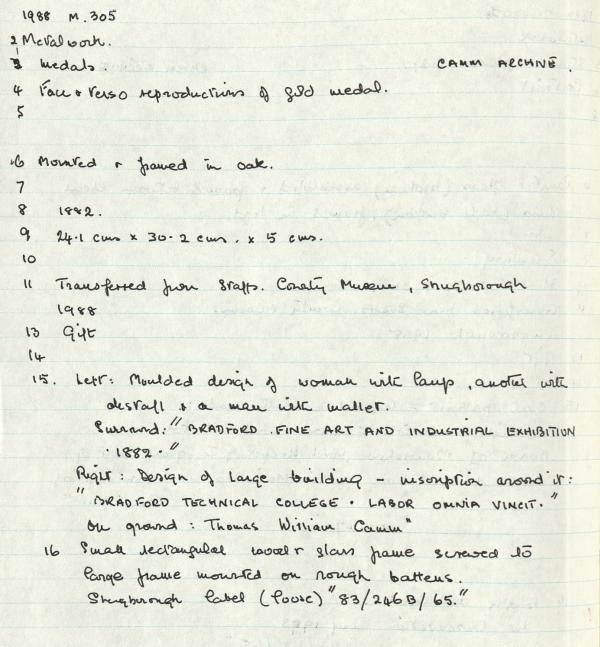 1988 M.305
2 Metalwork.
3 Medals. CAMM ARCHIVE.
4 Face & Verso reproductions of gold medal.
5
6 Mounted & framed in oak.
7
8 1882.
9 24.1 cms x 30.2 cms. x 5 cms.
10
11 Transferred from Staffs. County Museum, Shugborough
1988
13 Gift
14
15. Left: Moulded design of woman with lamp, another with
distaff & a man with mallet.
Surround: "BRADFORD. FINE ART AND INDUSTRIAL EXHIBITION
· 1882 ·"
Right: Design of large building - inscription around it:
"BRADFORD TECHNICAL COLLEGE · LABOR OMNIA VINCIT."
On ground: Thomas William Camm"
16 Small rectangular wood & glass frame screwed to
large frame mounted on rough battens.
Shugborough label (loose) "83/246B/65."